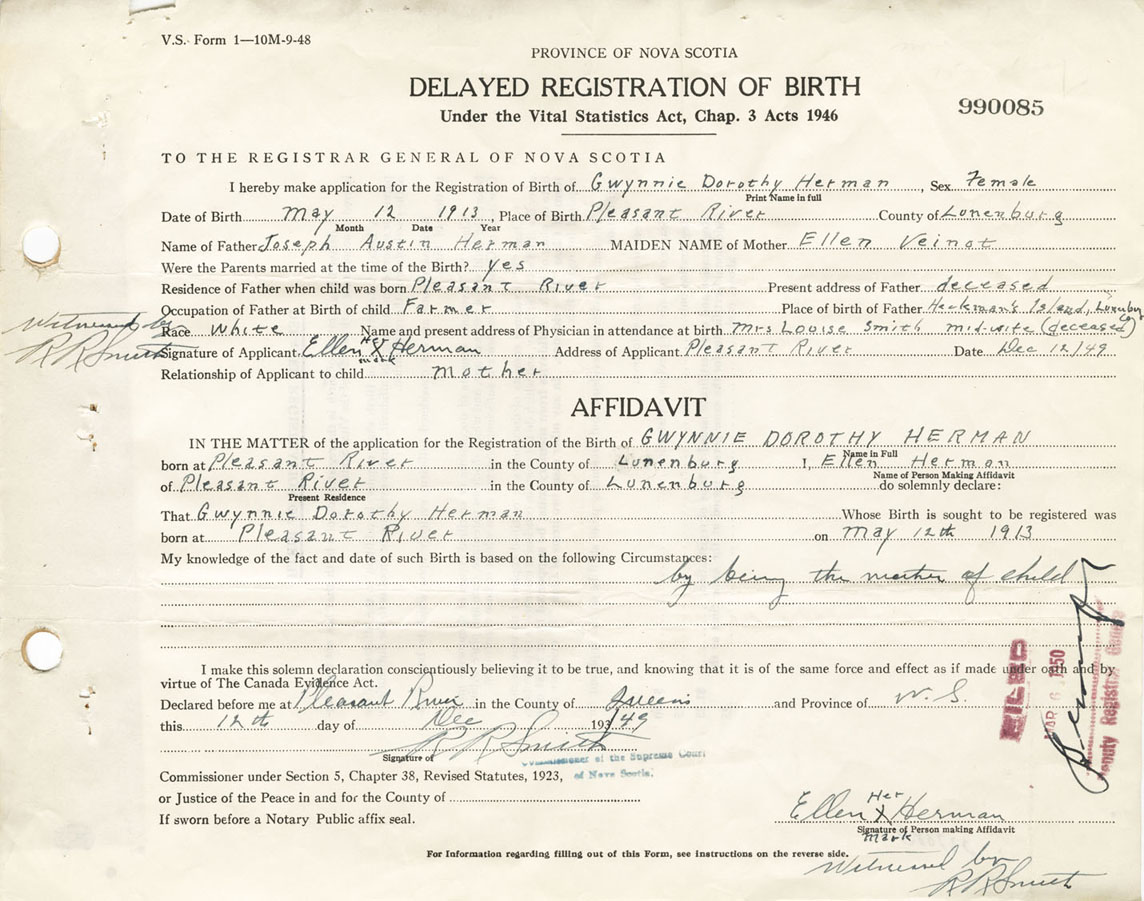 V.S. Form 1—10M-9-48
PROVINCE OF NOVA SCOTIA
DELAYED REGISTRATION OF BIRTH
990085
Under the Vital Statistics Act, Chap. 3 Acts 1946
TO THE REGISTRAR GENERAL OF NOVA SCOTIA
I hereby make application for the Registration of Birth of Gwynnie Dorothy Herman, Sex Female
Print Name in full
Date of Birth May 12 1913, Place of Birth Pleasant River County of Lunenburg
Month Date Year
Name of Father Joseph Austin Herman MAIDEN NAME of Mother Ellen Veinot
Were the Parents married at the time of the Birth? yes
Residence of Father when child was born Pleasant River Present address of Father deceased
Occupation of Father at Birth of child Farmer Place of birth of Father Heckman's Island, Lunenburg Co.
Race White Name and present address of Physician in attendance at birth Mrs Louise Smith mid-wife (deceased)
Witnessed by
R R Smith
Signature of Applicant Ellen Her X mark Herman Address of Applicant Pleasant River Date Dec 12/49
Relationship of Applicant to child Mother
AFFIDAVIT
IN THE MATTER of the application for the Registration of the Birth of GWYNNIE DOROTHY HERMAN
Name in Full
born at Pleasant River in the County of Lunenburg I, Ellen Herman
Name of Person Making Affidavit
of Pleasant River in the County of Lunenburg do solemnly declare:
Present Residence
That Gwynnie Dorothy Herman Whose Birth is sought to be registered was
born at Pleasant River on May 12th 1913
My knowledge of the fact and date of such Birth is based on the following Circumstances:
by being the mother of child
I make this solemn declaration conscientiously believing it to be true, and knowing that it is of the same force and effect as if made under oath and by
virtue of The Canada Evidence Act.
Declared before me at Pleasant River in the County of Queens and Province of N.S.
this 12th day of Dec 193/49
R R Smith
Signature of
Commissioner of the Supreme Court
of Nova Scotia.
Commissioner under Section 5, Chapter 38, Revised Statutes, 1923,
or Justice of the Peace in and for the County of
If sworn before a Notary Public affix seal.
Ellen Her X mark Herman
Signature of Person making Affidavit
For Information regarding filling out of this Form, see instructions on the reverse side.
Witnessed by
R R Smith
FILED
MAR 6 1950
Deputy Registrar General